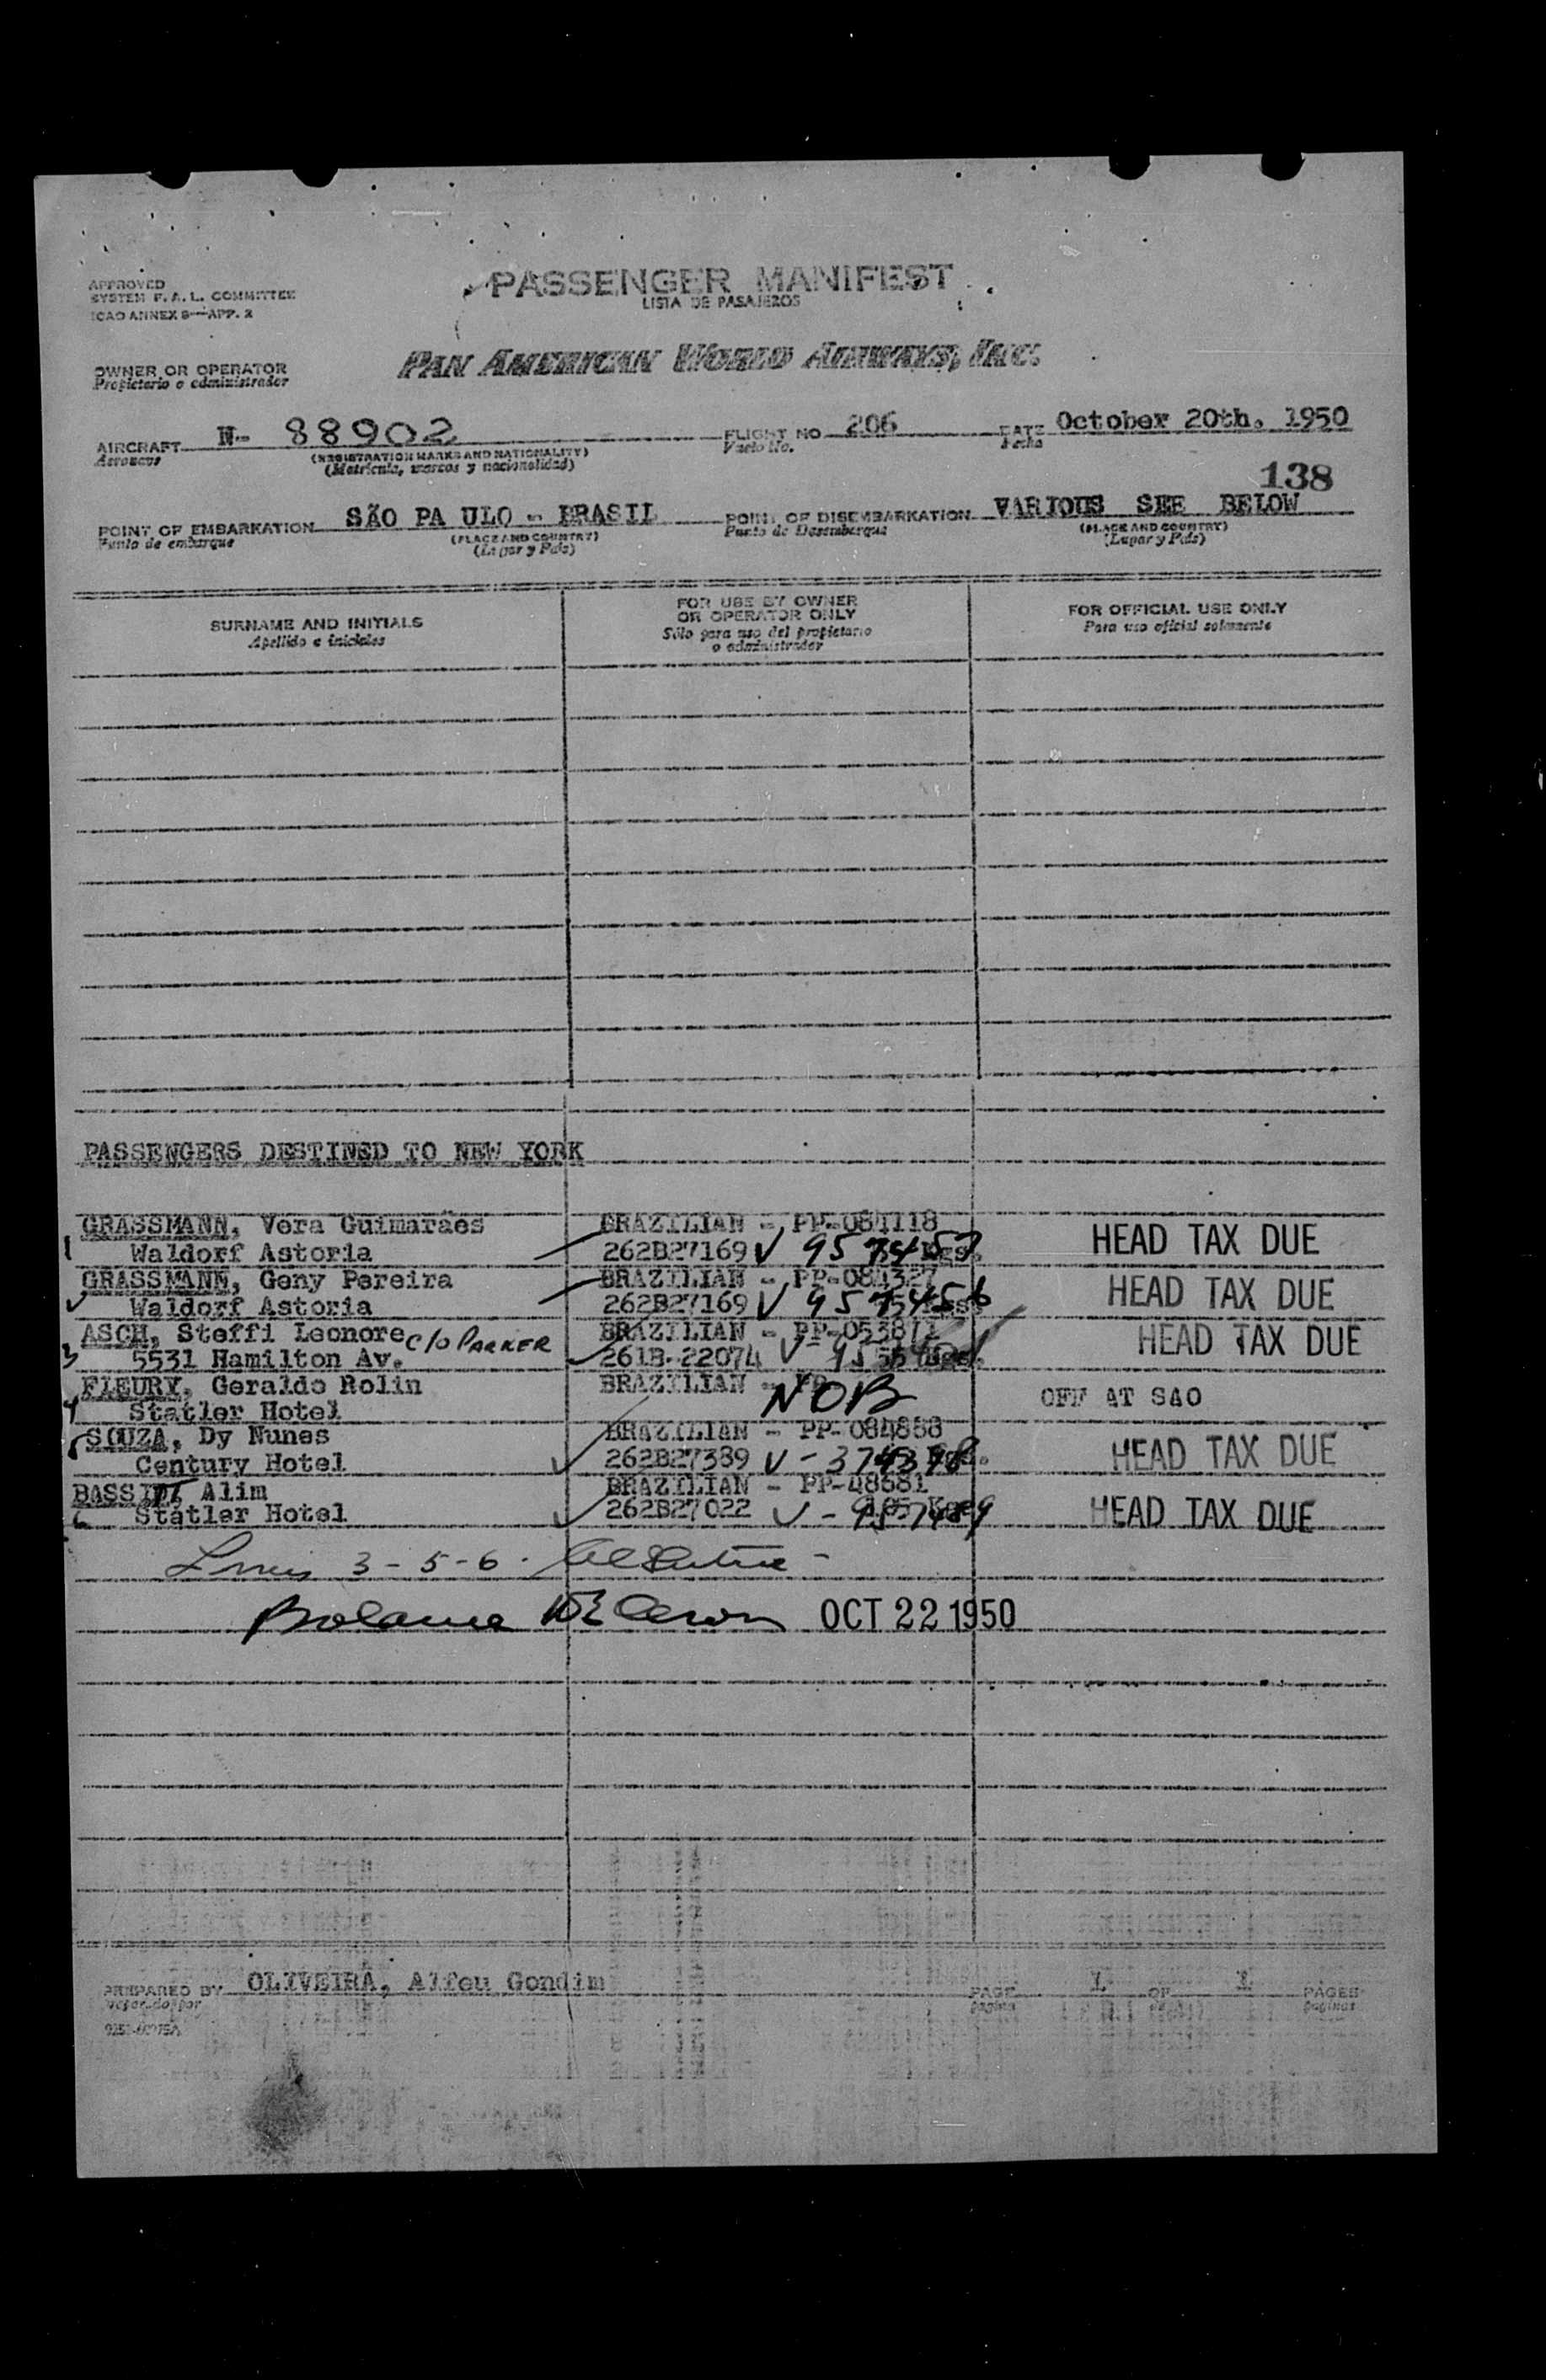 APPROVED
SYSTEM F. A. L. COMMITTEE
ICAO ANNEX 9—APP. 2
PASSENGER MANIFEST
LISTA DE PASAJEROS
OWNER OR OPERATOR
Propietario o administrador
PAN AMERICAN WORLD AIRWAYS, INC.
AIRCRAFT N- 88902 FLIGHT NO 206 DATE October 20th. 1950
Aeronave (REGISTRATION MARKS AND NATIONALITY) Vuelo No. Fecha
(Matrícula, marcas y nacionalidad)
138
POINT OF EMBARKATION SÃO PA ULO - BRASIL POINT OF DISEMBARKATION VARIOUS SEE BELOW
Punto de embarque (PLACE AND COUNTRY) Punto de Desembarque (PLACE AND COUNTRY)
(Lugar y País) (Lugar y País)
SURNAME AND INITIALS
Apellido e iniciales
FOR USE BY OWNER
OR OPERATOR ONLY
Sólo para uso del propietario
o administrador
FOR OFFICIAL USE ONLY
Para uso oficial solamente
PASSENGERS DESTINED TO NEW YORK
GRASSMANN, Vera Guimarães BRAZILIAN - PP-084118
1 Waldorf Astoria 262B27169 V 957457 HEAD TAX DUE
GRASSMANN, Geny Pereira BRAZILIAN - PP-084327
Waldorf Astoria 262B27169 V 957456 HEAD TAX DUE
ASCH, Steffi Leonore c/o PARKER BRAZILIAN -
3 5531 Hamilton Av. 261B-22074 V HEAD TAX DUE
FLEURY, Geraldo Rolin BRAZILIAN - PP NOB
4 Statler Hotel OFF AT SAO
SOUZA, Dy Nunes BRAZILIAN - PP-084858
5 Century Hotel 262B27389 V - HEAD TAX DUE
Alim BRAZILIAN - PP-48681
6 Statler Hotel 262B27022 V - 957489 HEAD TAX DUE
3 - 5 - 6 -
OCT 22 1950
PREPARED BY OLIVEIRA, Alfeu Gondim PAGE 1 OF 1 PAGES
pagina paginas